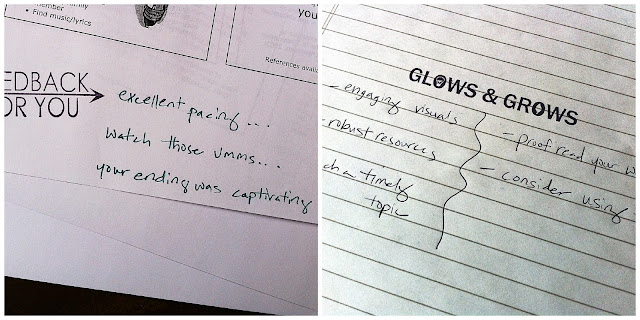 member
• Find music/lyrics
you
References avail
EEDBACK
OR YOU
excellent pacing...
watch those umms...
your ending was captivating
GLOWS & GROWS
- engaging visuals
- robust resources
timely
topic
- proof read your w
- consider using